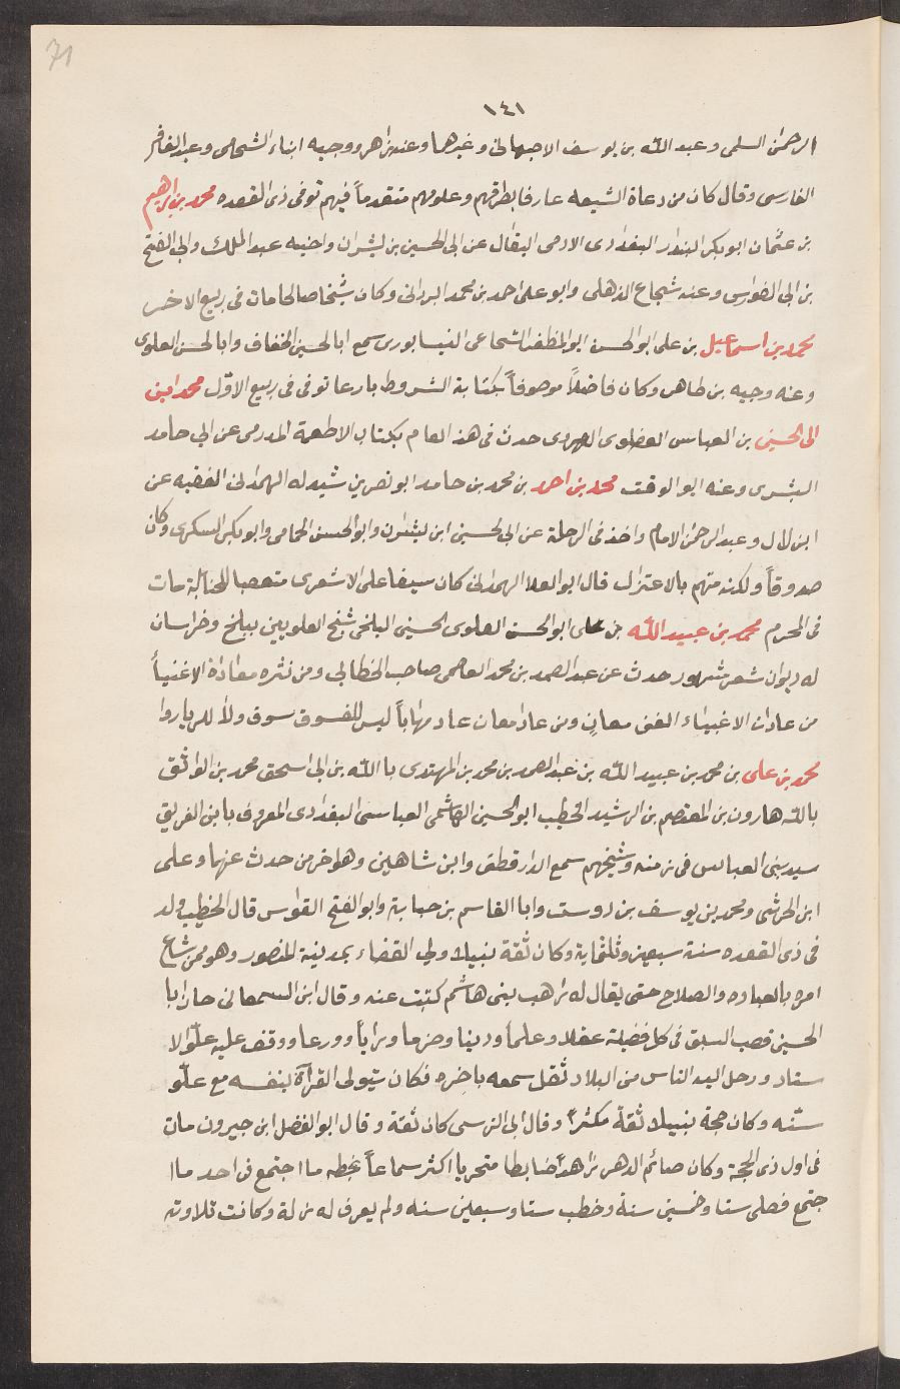 71
١٤١
الرحمن السلمى وعبد الله بن يوسف الاصبهانى وغيرهما وعنه زاهر ووجيه ابناء الشحامى وعبد الغافر
الفارسى وقال كان من دعاة الشيعه عارفا بطرقهم وعلومهم متقدماً فيهم توفى فى ذى القعده محمد بن ابراهيم
بن عثمان ابو بكر البندار البغدادى الادمى البقال عن ابى الحسين بن بشران واخيه عبد الملك وابى الفتح
بن ابى الفوارس وعنه شجاع الذهلى وابو على احمد بن محمد البردانى وكان شيخا صالحا مات فى ربيع الاخر
محمد بن اسماعيل بن على ابو الحسن ابو المظفر الشحاعى النيسابورى سمع ابا الحسين الخفاف وابا الحسن العلوى
وعنه وجيه بن طاهر وكان فاضلاً موصوفاً بكتابة الشروط بارعا توفى فى ربيع الاوّل محمد ابن
ابى الحسين بن العباس الفضلوى الهروى حدث فى هذ العام بكتاب الاطعمة للدرمى عن ابى حامد
البشرى وعنه ابو الوقت محمد بن احمد بن محمد بن حامد ابو نصر بن شيدله الهمدانى الفقيه عن
ابن لال وعبد الرحمن الامام واخذ فى الرحلة عن ابى لحسين ابن بشران وابو الحسن الحمامى وابو بكر السكرى وكان
صدوقاً ولكنه متهم بالاعتزال قال ابو العلا الهمدانى كان سيفا على الاشعرى متعصبا للحنابلة مات
فى المحرم محمد بن عبيد الله بن على ابو الحسن العلوى الحسينى البلخى شيخ العلويين ببلخ وخراسان
له ديوان شعر مشهور حدث عن عبد الصمد بن محمد العاصمى صاحب الخطابى ومن نثره معاداة الاغنيأ
من عادات الاغبياء الغنى معانٍ ومن عادا معان عاد مهاباً ليس للفسوق سوق ولا للربا روا
محمد بن على بن محمد بن عبيد الله بن عبد الصمد بن محمد بن المهتدى با الله بن ابى اسحق محمد بن الواثق
بالله هارون بن المعتصم بن الرشيد الخطيب ابو الحسين الهاشمى العباسى البغدادى المعروف بابن الغريق
سيد بنى العباس فى زمنه وشيخهم سمع الدارقطنى وابن شاهين وهو اخر من حدث عنها وعلى
ابن الحرشى ومحمد بن يوسف بن دوست وابا القاسم بن حبابة وابو الفتح القواس قال الخطيب ولد
فى ذى القعده سنة سبعين وثلثماية وكان ثقة نبيلا ولى القضاء بمدينة المنصور وهو ممن شاع
امره بالعباده والصلاح حتى يقال له راهب بنى هاشم كتبت عنه وقال ابن السمعانى حاز ابا
الحسين قصب السبق فى كل فضيلة عقلا وعلماً ودينا وحزما ورأياً وورعا ووقف عليه علّو الا
سناد ورحل اليه الناس من البلاد ثقل سمعه باخره فكان يتولى القرآة بنفسه مع علّو
سنّه وكان حجة نبيلا ثقة مكثراً وقال ابى النرسى كان ثقة وقال ابو الفضل ابن خيرون مات
فى اول ذى الحجة وكان صائم الدهر زاهداً ضابطا متحريا اكثر سماعاً بخطه ما اجتمع فى احد ما ا
جتمع فصلى ستا وخمسين سنة وخطب ستا وسبعين سنه ولم يعرف له زلة وكانت تلاوته